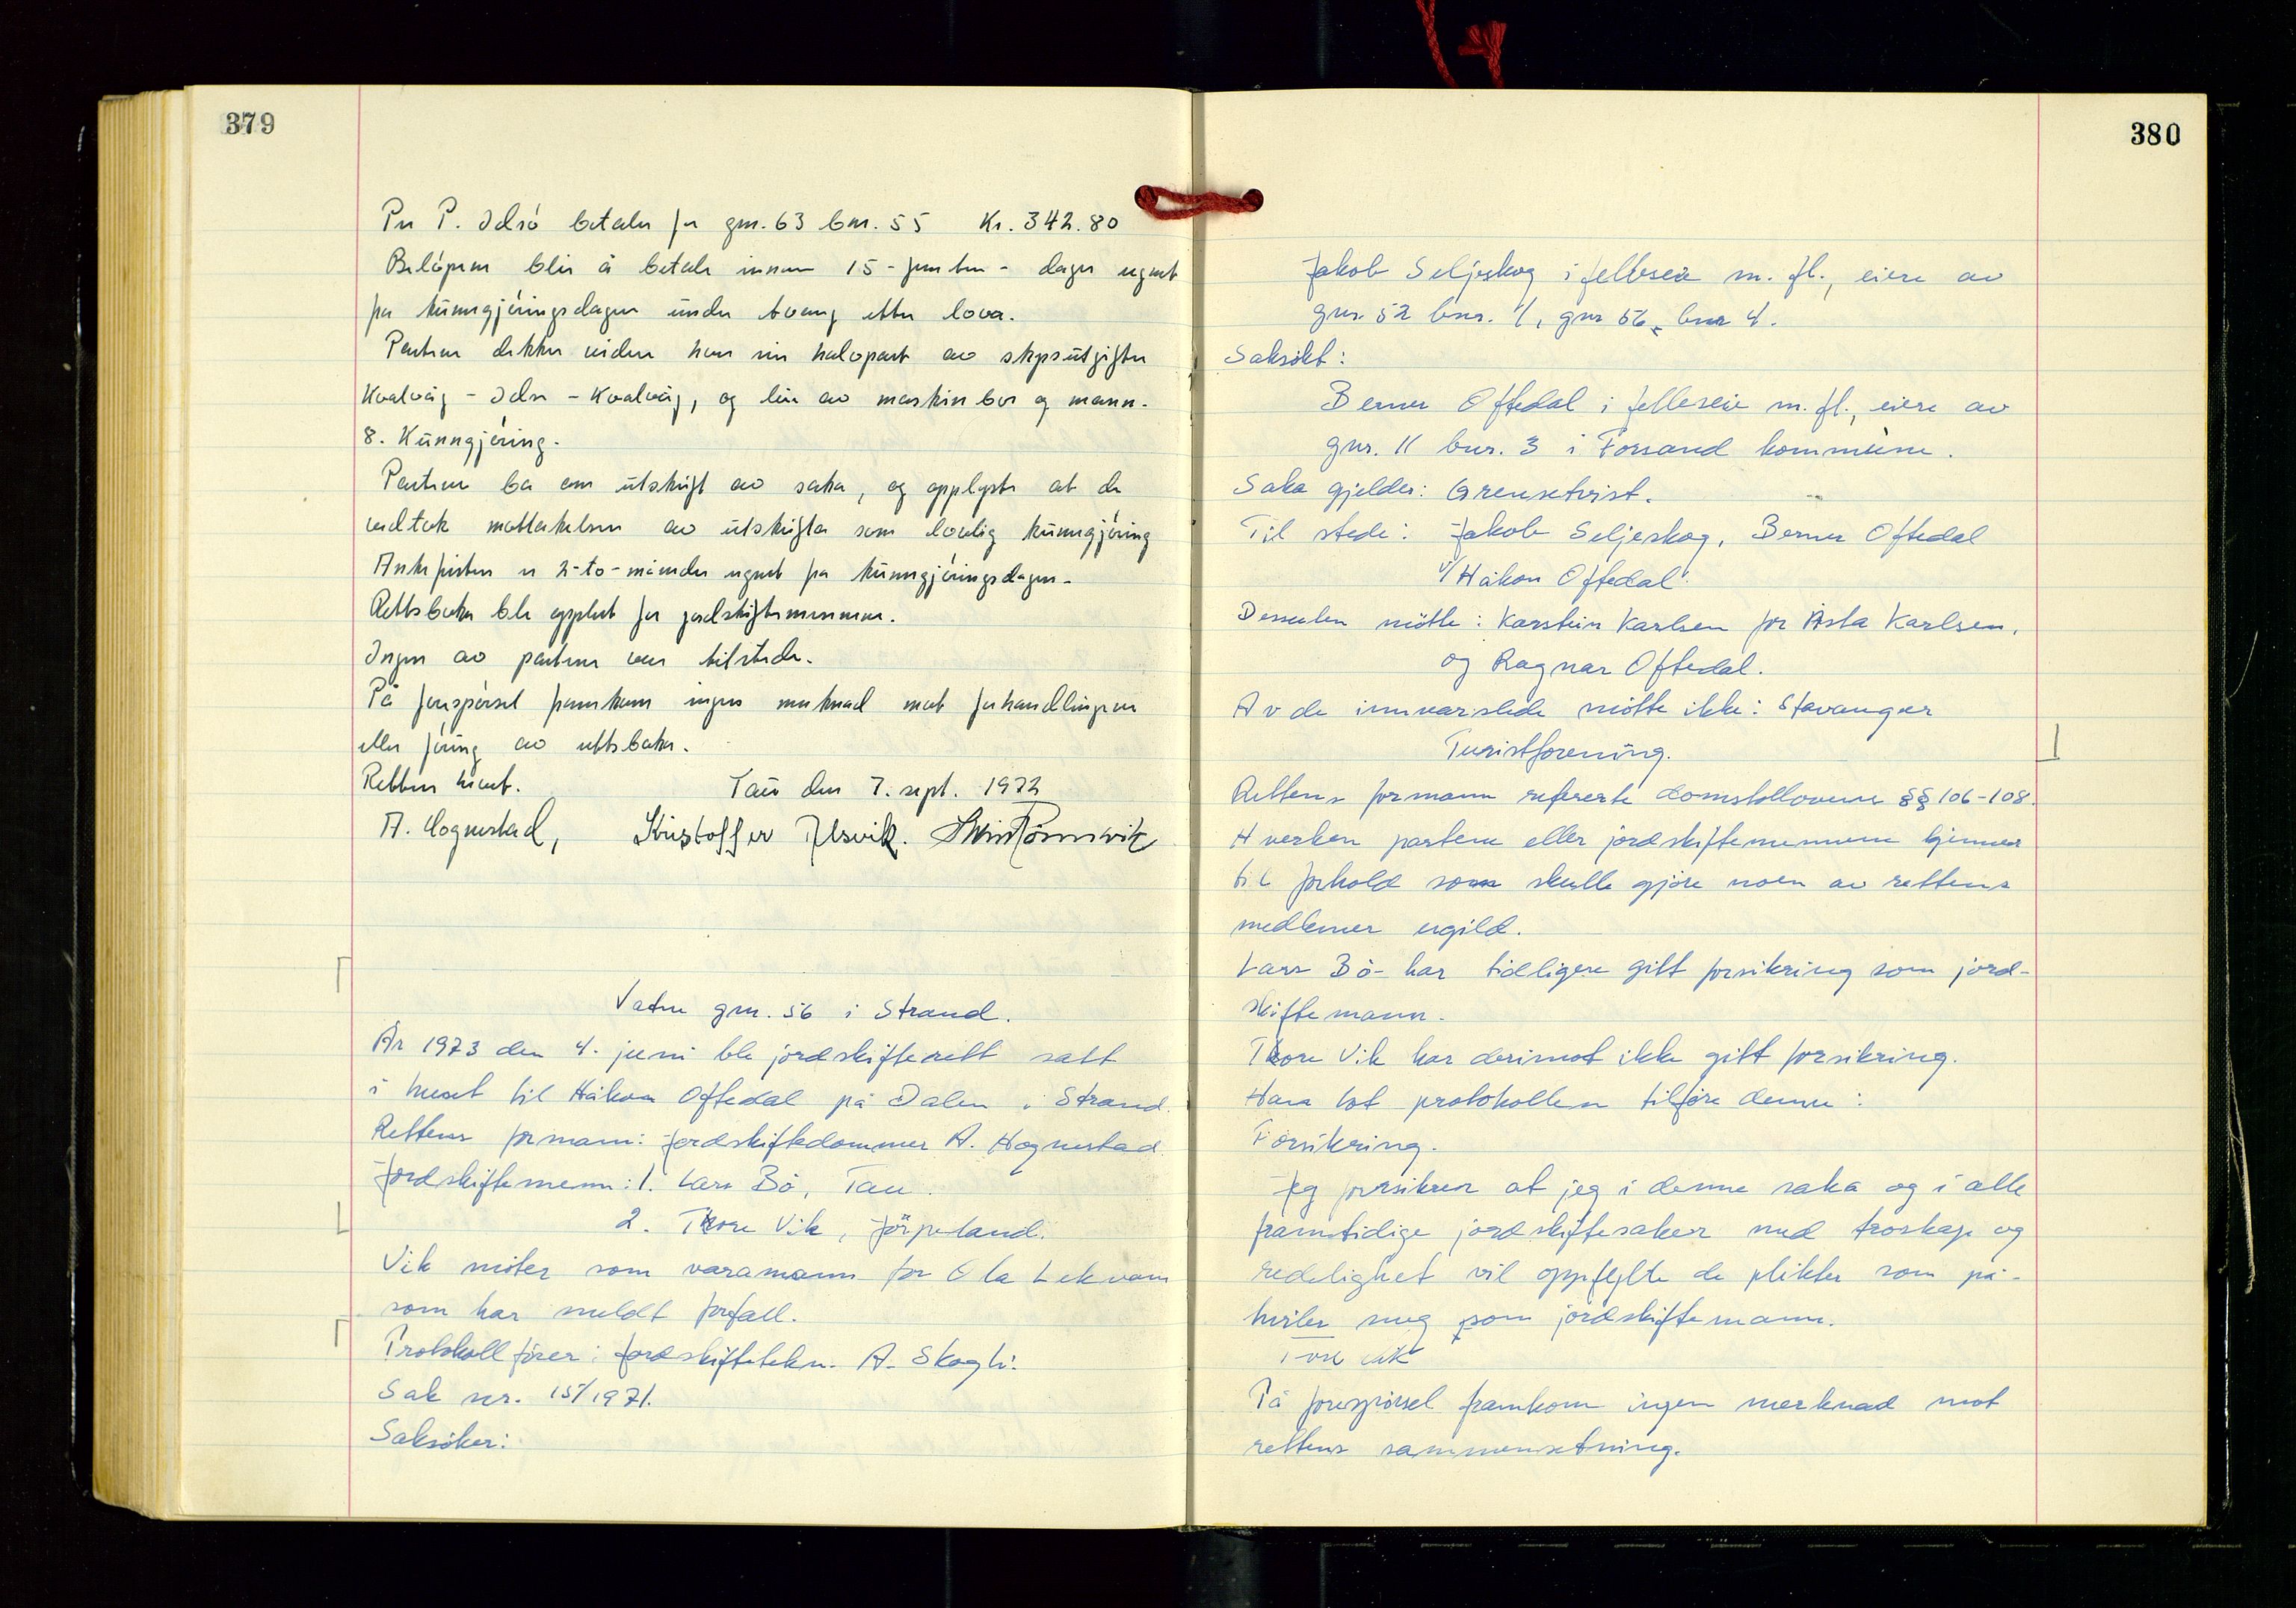 379
Per P. Idsø betaler for gnr. 63 bnr. 55 Kr. 342.80
Beløpene blir å betale innen 15-femten- dager regnet
fra kunngjøringsdagen under tvang etter lova.
Partene dekker videre hver sin halvpart av skyssutgifter
Kvalvåg - Idsø - Kvalvåg, og leie av maskinbor og mann.
8. Kunngjøring.
Partene ba om utskrift av saka, og opplyste at de
vedtok mottakelsen av utskrifta som lovlig kunngjøring
Ankefristen er 2-to-måneder regnet fra kunngjøringsdagen.
Rettsboka ble opplest for jordskiftemennene.
Ingen av partene var tilstede.
På forespørsel framkom ingen merknad mot forhandlingene
eller føring av rettsboka.
Retten hevet. Tau den 7. sept. 1972
A. Hognestad, Kristoffer Alsvik.
Vatne gnr. 56 i Strand.
År 1973 den 4. juni ble jordskifterett satt
i huset til Håkon Oftedal på Dalen i Strand.
Rettens formann: Jordskiftedommer A. Hognestad.
Jordskiftemenn: 1. Lars Bø, Tau.
2. Thore Vik, Jørpeland.
Vik møter som varamann for Ola Lekvam
som har meldt forfall.
Protokollfører: Jordskiftetekn. A. Skogli.
Sak nr. 15/1971.
Saksøker:
380
Jakob Seljeskog i felleseie m. fl., eiere av
gnr. 52 bnr. 1, gnr 56, bnr 4.
Saksøkt:
Berner Oftedal i felleseie m. fl., eiere av
gnr. 11 bnr. 3 i Forsand kommune.
Saka gjelder: Grensetvist.
Til stede: Jakob Seljeskog, Berner Oftedal
v/Håkon Oftedal.
Dessuten møtte: Karstein Karlsen for Åsta Karlsen,
og Ragnar Oftedal.
Av de innvarslede møtte ikke: Stavanger
Turistforening.
Rettens formann refererte domstollovens §§ 106-108.
Hverken partene eller jordskiftemennene kjenner
til forhold som skulle gjøre noen av rettens
medlemer ugild.
Lars Bø har tidligere gitt forsikring som jord-
skiftemann.
Thore Vik har derimot ikke gitt forsikring.
Han lot protokollen tilføre denne:
Forsikring.
Jeg forsikrer at jeg i denne saka og i alle
framtidige jordskiftesaker med troskap og
redelighet vil oppfylle de plikter som på-
hviler meg som jordskiftemann.
Tore Vik
På forespørsel framkom ingen merknad mot
rettens sammensetning.